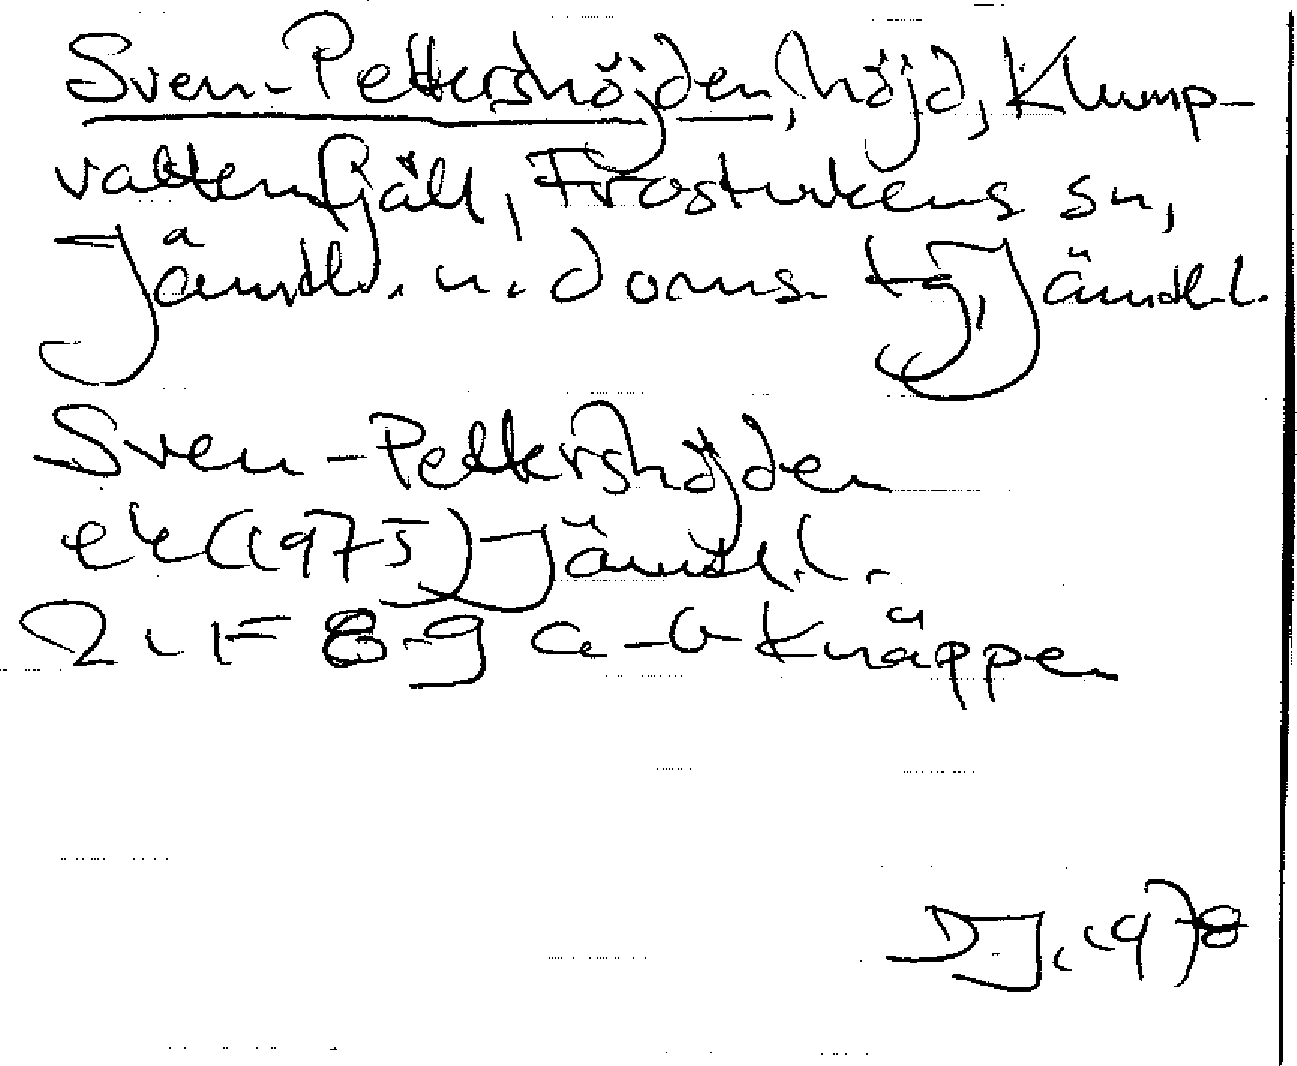 Sven-Pettershöjden, höjd, Klump-
vattenfjäll, Frostvikens sn,
Jämtl. n. doms. tg, Jämtl.l.
Sven-Pettershöjden
ek (1975) Jämtl.l.
22F 8-9 a-b Knäppen
DJ. 1978